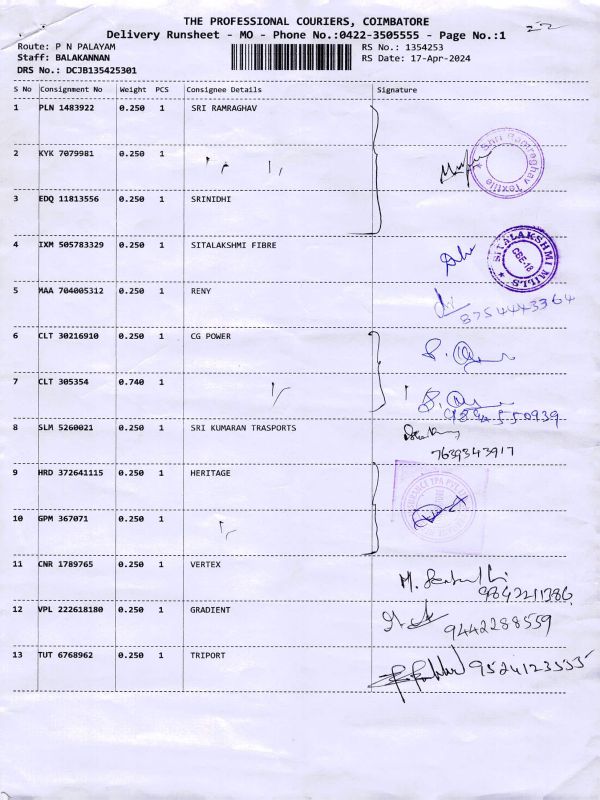 THE PROFESSIONAL COURIERS, COIMBATORE
Delivery Runsheet - MO - Phone No.:0422-3505555 - Page No.:1
22
Route: P N PALAYAM
RS No.: 1354253
Staff: BALAKANNAN
RS Date: 17-Apr-2024
DRS No.: DCJB135425301
S No Consignment No Weight PCS Consignee Details Signature
1 PLN 1483922 0.250 1 SRI RAMRAGHAV
2 KYK 7079981 0.250 1
Sri Ramraghav Textile
3 EDQ 11813556 0.250 1 SRINIDHI
4 IXM 505783329 0.250 1 SITALAKSHMI FIBRE
SITALAKSHMI MILLS
CBE-18
5 MAA 704005312 0.250 1 RENY
8754443364
6 CLT 30216910 0.250 1 CG POWER
7 CLT 305354 0.740 1
8 SLM 5260021 0.250 1 SRI KUMARAN TRASPORTS
7639343917
9 HRD 372641115 0.250 1 HERITAGE
10 GPM 367071 0.250 1
11 CNR 1789765 0.250 1 VERTEX
9842211386
12 VPL 222618180 0.250 1 GRADIENT
9442288559
13 TUT 6768962 0.250 1 TRIPORT
9524123535